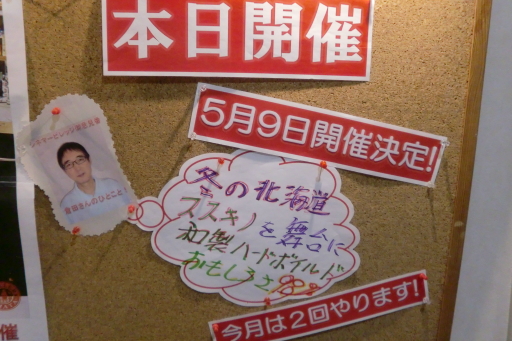 本日開催
5月9日開催決定!
冬の北海道
ススキノを舞台に
和製ハードボイルド
おもしろさ
今月は2回やります!
さんのひとこと
催